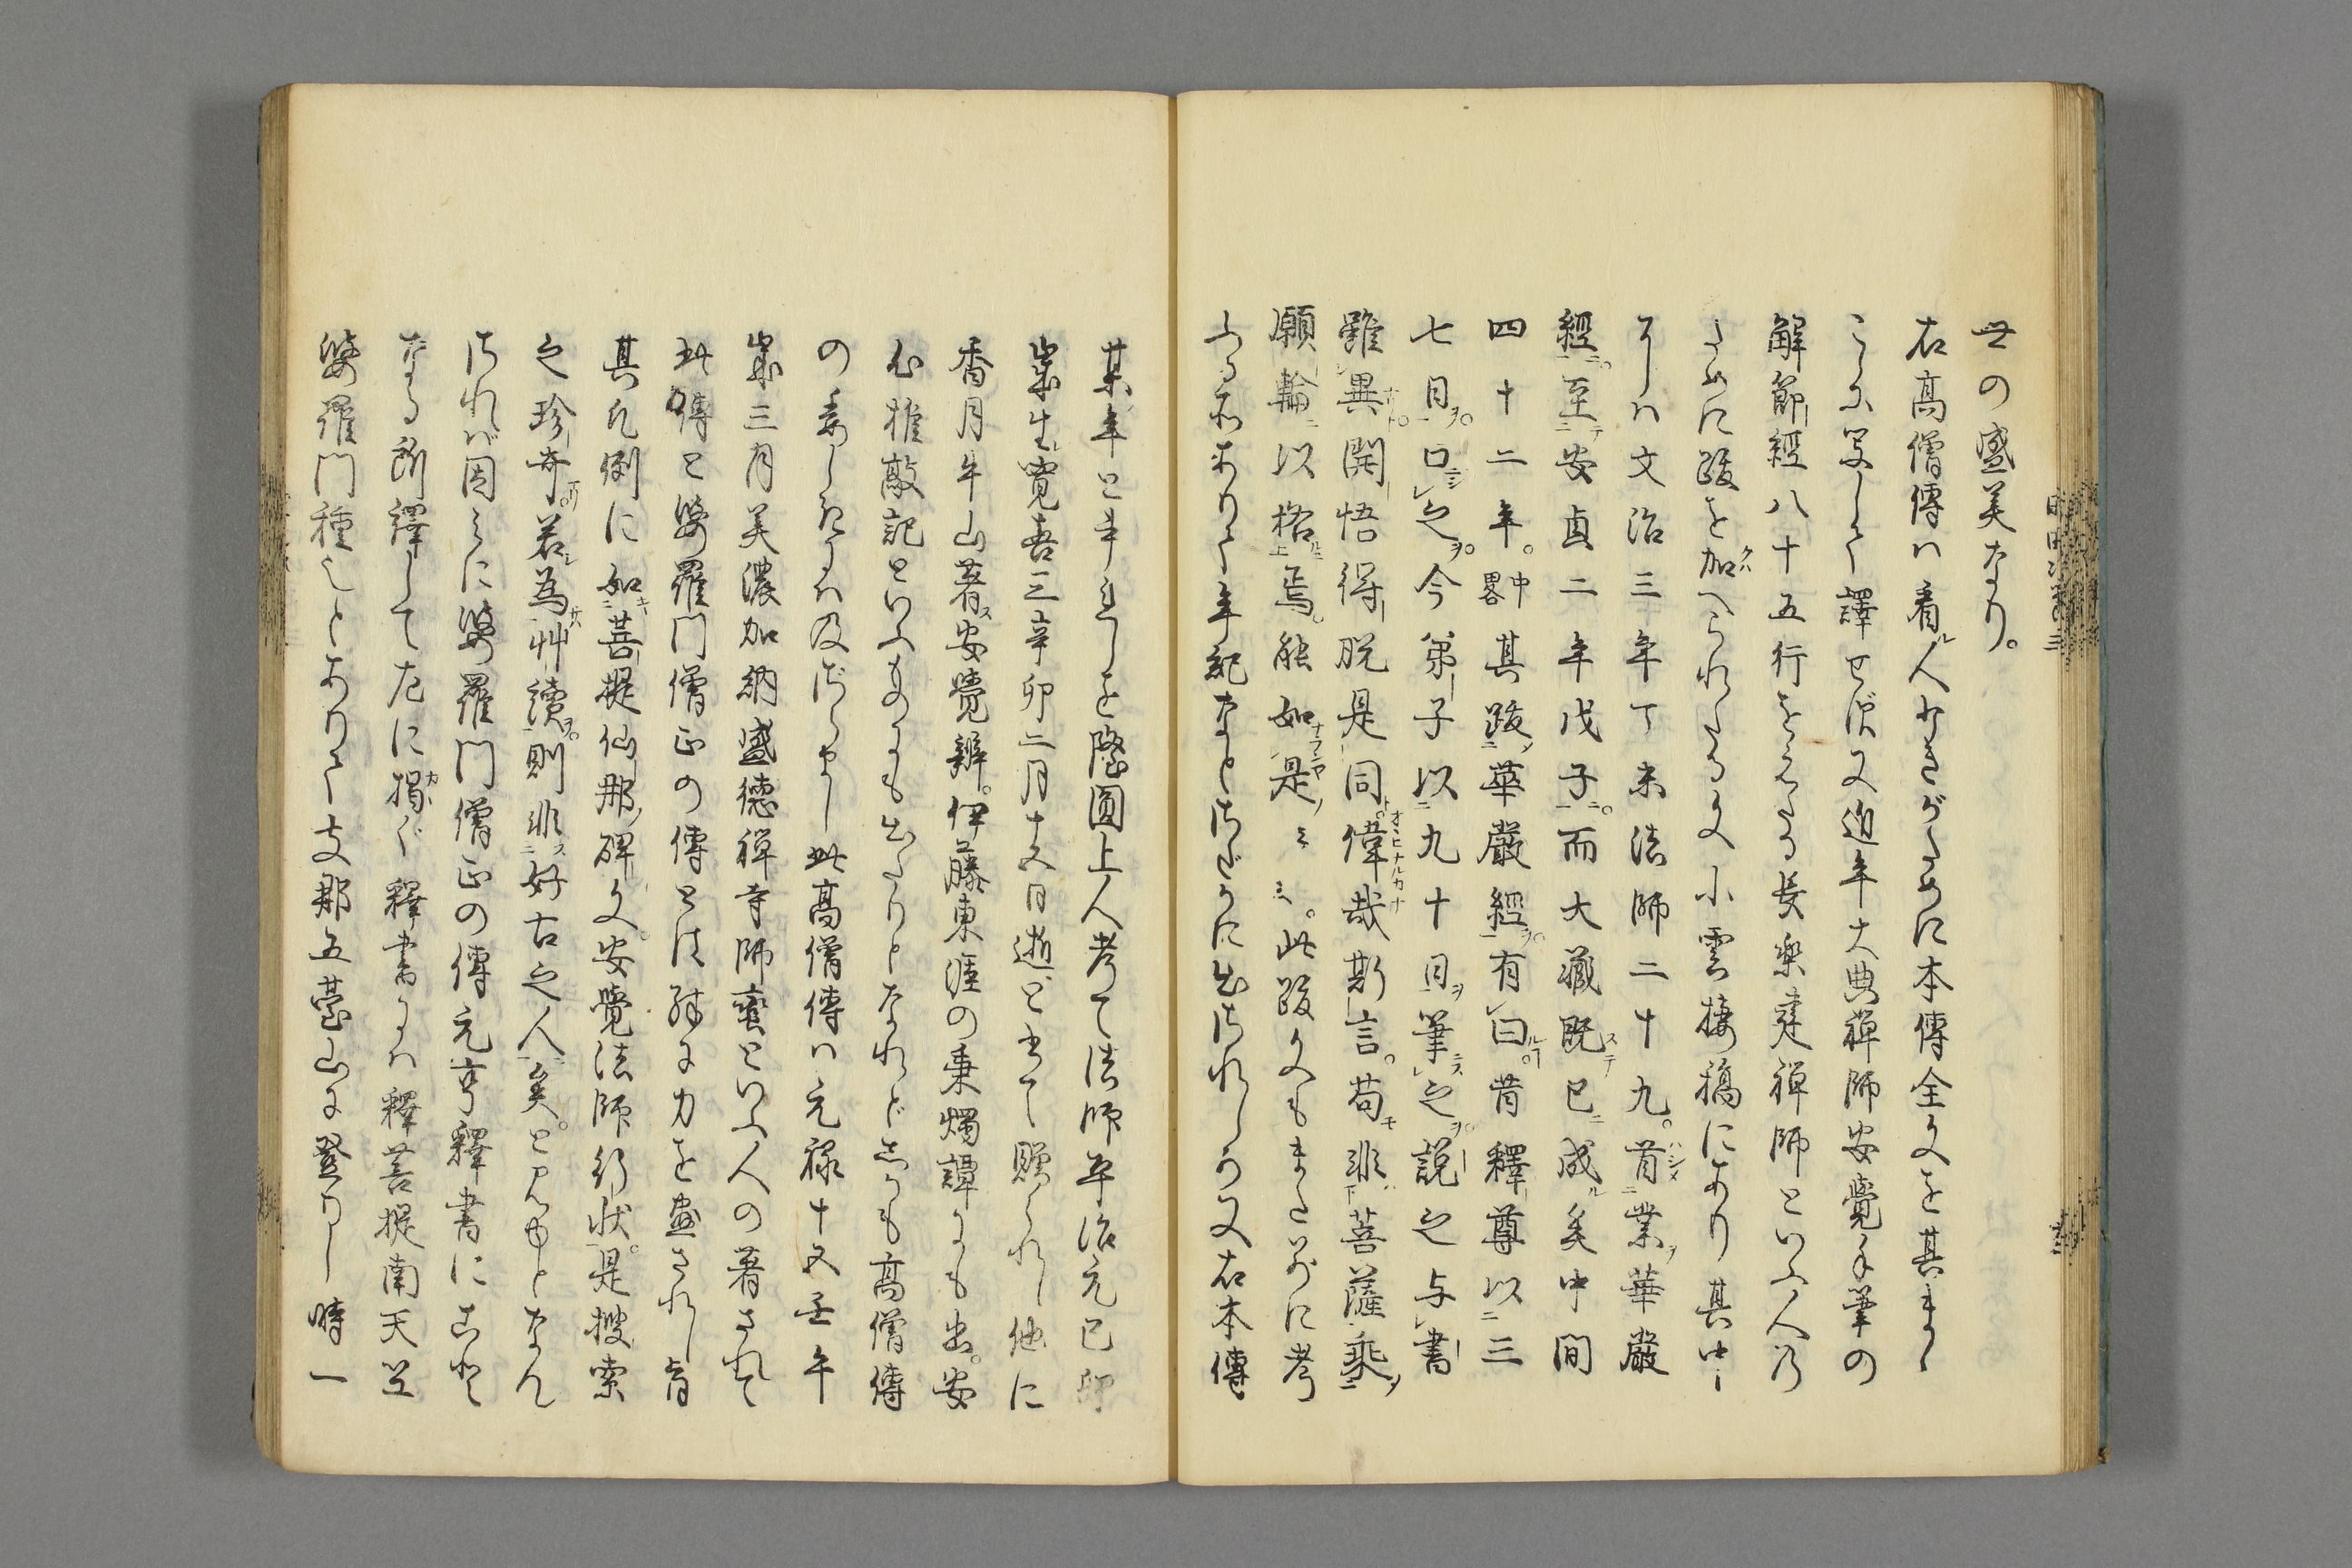 世の盛美なり。
右高僧傳ハ看ル人少きがために本傳全文を其まゝ
こゝに写して譯せず又近年大典禅師安覺手筆の
解節經八十五行をえたる長樂建禅師といふ人の
ために跋を加へられたる文小雲棲稿にあり其中に
そハ文治三年丁未法師二十九。首業華嚴
經。至安貞二年戊子。而大藏既已成矣中間
四十二年。中畧其跋華嚴經有曰。昔釋尊以三
七日。口之。今弟子以九十日筆之。說之与書
雖異。開悟得脱是同。偉哉斯言。苟非菩薩乘
願輪以格焉。能如是ミミ。此跋文もまたこゝに考
ふる所ありて年紀などさだかに出されしの又右本傳
某年とありしを隆圓上人考て法師平治元己卯
歳生寛喜三辛卯二月十五日逝と書て贈られし他に
香月牛山著安覺辨。伊藤東涯の秉燭譚にも出。安
心推敲記といふものにも出たりとなれど〻も高僧傳
の委しきには及ばざるべし此高僧傳ハ元禄十五壬午
歳三月美濃加納盛徳禅寺師蠻といふ人の著されて
此傳と婆羅門僧正の傳とは殊に力を盡されし旨
其凡例に如菩提仙那碑文。安覺法師行状。是捜索
之珍奇。若為艸讀。則非好古之人矣。と見ゆとなん
されバ因みに婆羅門僧正の傳元亨釋書に出
なる所譯して左に掲ぐ釋書にハ釋菩提南天竺
婆羅門種也とありて支那五臺山に登りし時一